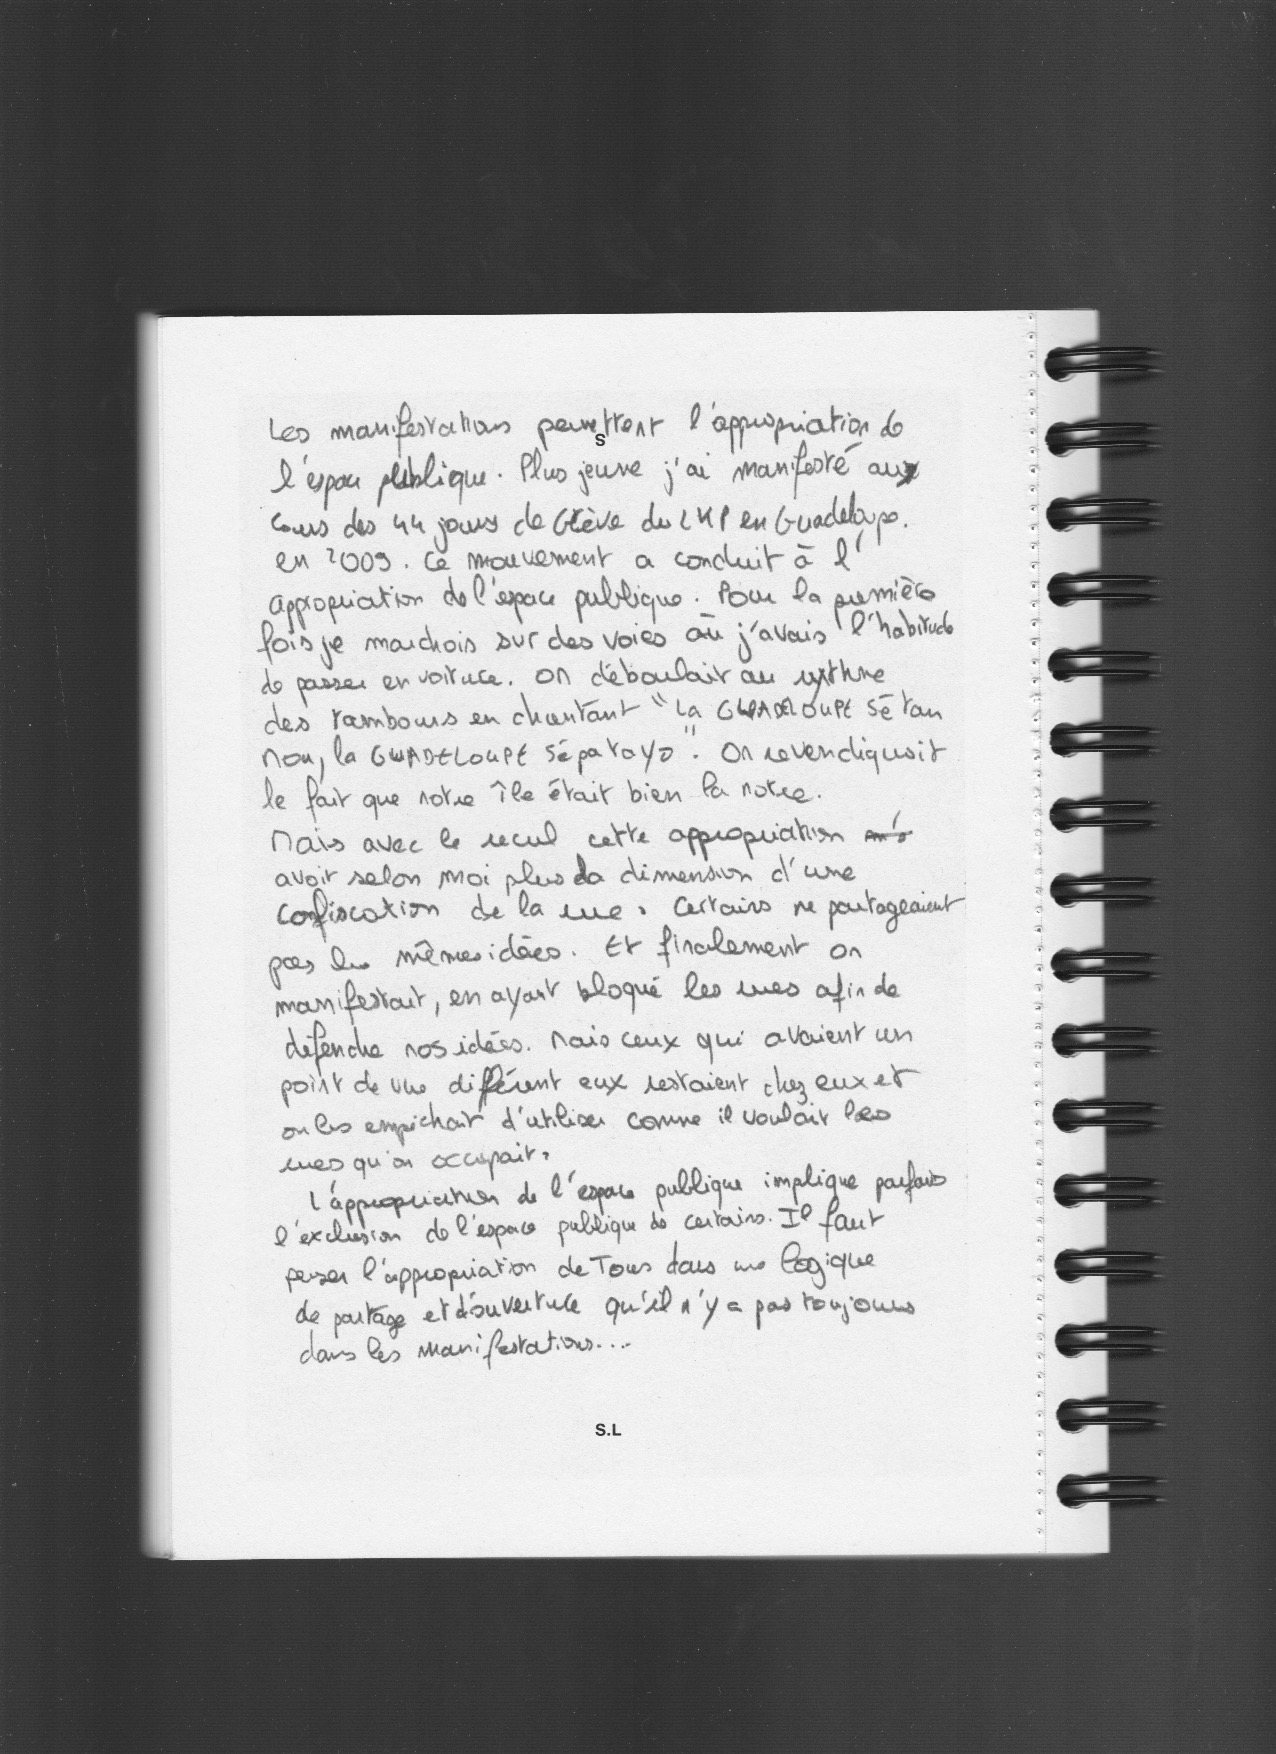 Les manifestations permettent l'appropriation de
S
l'espace publique. Plus jeune j'ai manifesté aux
cours des 44 jours de Grève du LKP en Guadeloupe.
en 2009. Ce mouvement a conduit à l'
appropriation de l'espace publique. Pour la première
fois je marchais sur des voies où j'avais l'habitude
de passer en voiture. On déboulait au rythme
des tambours en chantant "La GWADELOUPE sé tan
nou, la GWADELOUPE sé pa ta yo". On revendiquait
le fait que notre île était bien la notre.
Mais avec le recul cette appropriation
avait selon moi plus la dimension d'une
confiscation de la rue. Certains ne partageaient
pas les mêmes idées. Et finalement on
manifestait, en ayant bloqué les rues afin de
défendre nos idées. Mais ceux qui avaient un
point de vue différent eux restaient chez eux et
on les empêchait d'utiliser comme il voulait les
rues qu'on occupait.
L'appropriation de l'espace publique implique parfois
l'exclusion de l'espace publique de certains. Il faut
penser l'appropriation de Tous dans une logique
de partage et d'ouverture qu'il n'y a pas toujours
dans les manifestations....
S.L